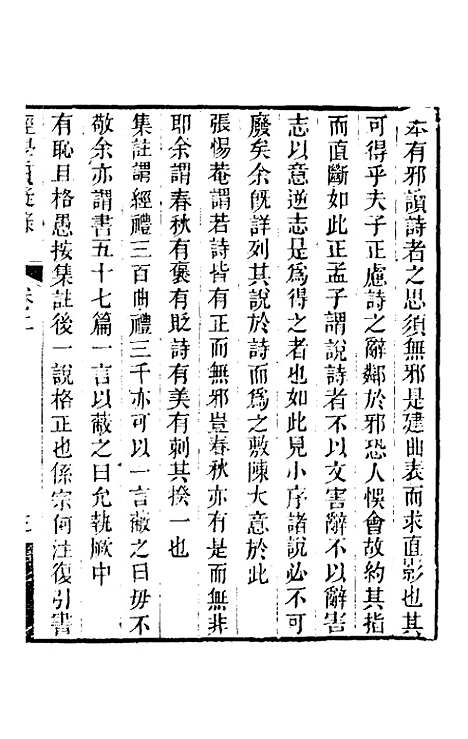 本有邪讀詩者之思須無邪是建曲表而求直影也其
可得乎夫子正慮詩之辭鄰於邪恐人悞會故約其指
而直斷如此正孟子謂說詩者不以文害辭不以辭害
志以意逆志是爲得之者也如此見小序諸說必不可
廢矣余旣詳列其說於詩而爲之敷陳大意於此
張惕菴謂若詩皆有正而無邪豈春秋亦有是而無非
耶余謂春秋有褒有貶詩有美有刺其揆一也
集註謂經禮三百曲禮三千亦可以一言蔽之曰毋不
敬余亦謂書五十七篇一言以蔽之曰允執厥中
有恥且格愚按集註後一說格正也係宗何注復引書
經學質疑錄
卷二
三